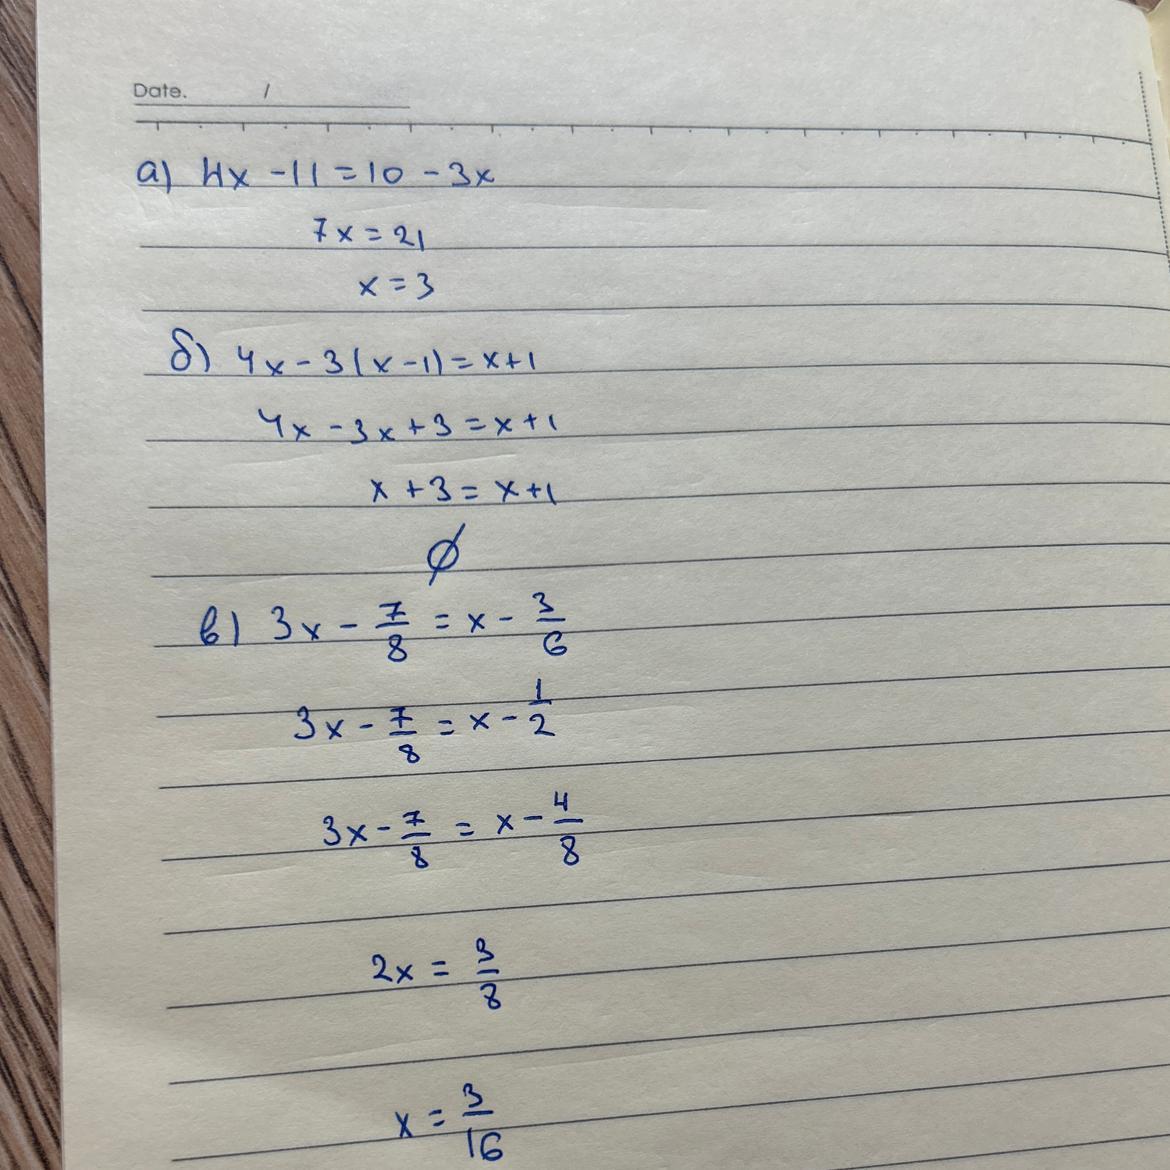 Date. /
а) 4x - 11 = 10 - 3x
7x = 21
x = 3
б) 4x - 3(x - 1) = x + 1
4x - 3x + 3 = x + 1
x + 3 = x + 1
∅
в) 3x - 7/8 = x - 3/6
3x - 7/8 = x - 1/2
3x - 7/8 = x - 4/8
2x = 3/8
x = 3/16